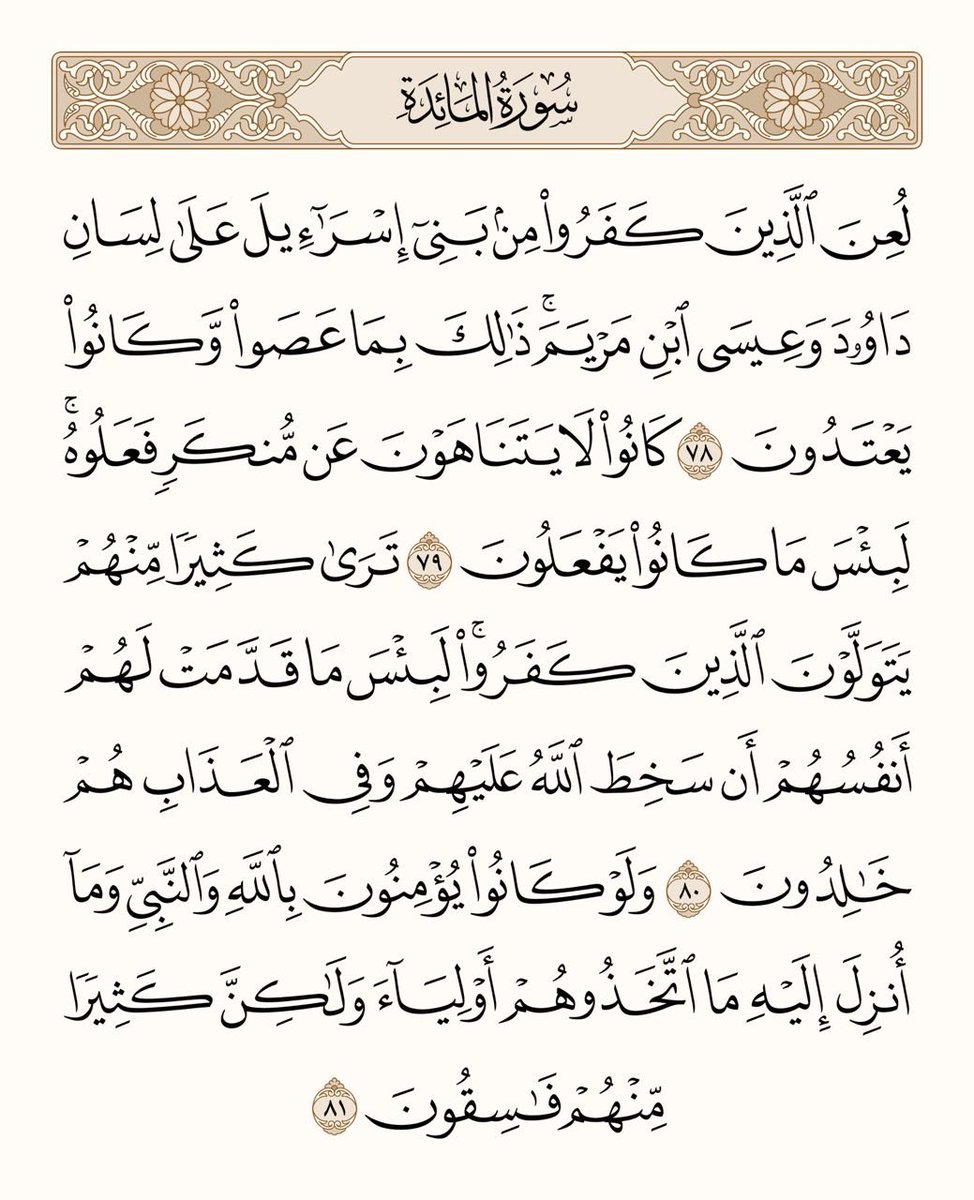 سُورَةُ المَائِدَةِ
لُعِنَ ٱلَّذِينَ كَفَرُوا۟ مِنۢ بَنِىٓ إِسْرَٰٓءِيلَ عَلَىٰ لِسَانِ
دَاوُۥدَ وَعِيسَى ٱبْنِ مَرْيَمَ ۚ ذَٰلِكَ بِمَا عَصَوا۟ وَّكَانُوا۟
يَعْتَدُونَ ٧٨ كَانُوا۟ لَا يَتَنَاهَوْنَ عَن مُّنكَرٍ فَعَلُوهُ ۚ
لَبِئْسَ مَا كَانُوا۟ يَفْعَلُونَ ٧٩ تَرَىٰ كَثِيرًا مِّنْهُمْ
يَتَوَلَّوْنَ ٱلَّذِينَ كَفَرُوا۟ ۚ لَبِئْسَ مَا قَدَّمَتْ لَهُمْ
أَنفُسُهُمْ أَن سَخِطَ ٱللَّهُ عَلَيْهِمْ وَفِى ٱلْعَذَابِ هُمْ
خَٰلِدُونَ ٨٠ وَلَوْ كَانُوا۟ يُؤْمِنُونَ بِٱللَّهِ وَٱلنَّبِىِّ وَمَآ
أُنزِلَ إِلَيْهِ مَا ٱتَّخَذُوهُمْ أَوْلِيَآءَ وَلَٰكِنَّ كَثِيرًا
مِّنْهُمْ فَٰسِقُونَ ٨١